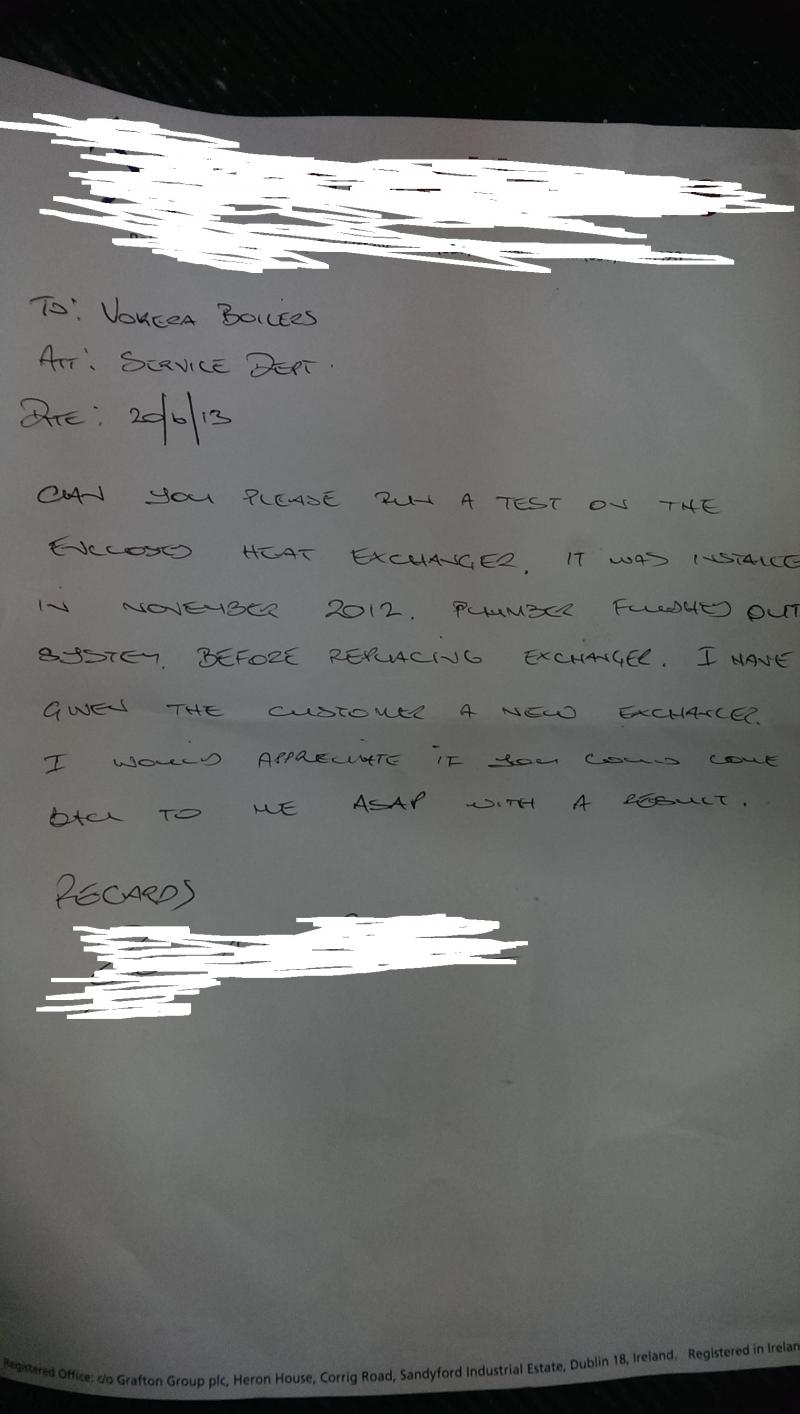 To: VOKERA BOILERS
ATT: SERVICE DEPT.
DATE: 20/6/13
CAN YOU PLEASE RUN A TEST ON THE
ENCLOSED HEAT EXCHANGER. IT WAS INSTALLE
IN NOVEMBER 2012. PLUMBER FLUSHED OUT
SYSTEM. BEFORE REPLACING EXCHANGER. I HAVE
GIVEN THE CUSTOMER A NEW EXCHANGER.
I WOULD APPRECIATE IF YOU COULD COME
BACK TO ME ASAP WITH A RESULT.
REGARDS
Registered Office: c/o Grafton Group plc, Heron House, Corrig Road, Sandyford Industrial Estate, Dublin 18, Ireland. Registered in Irelan